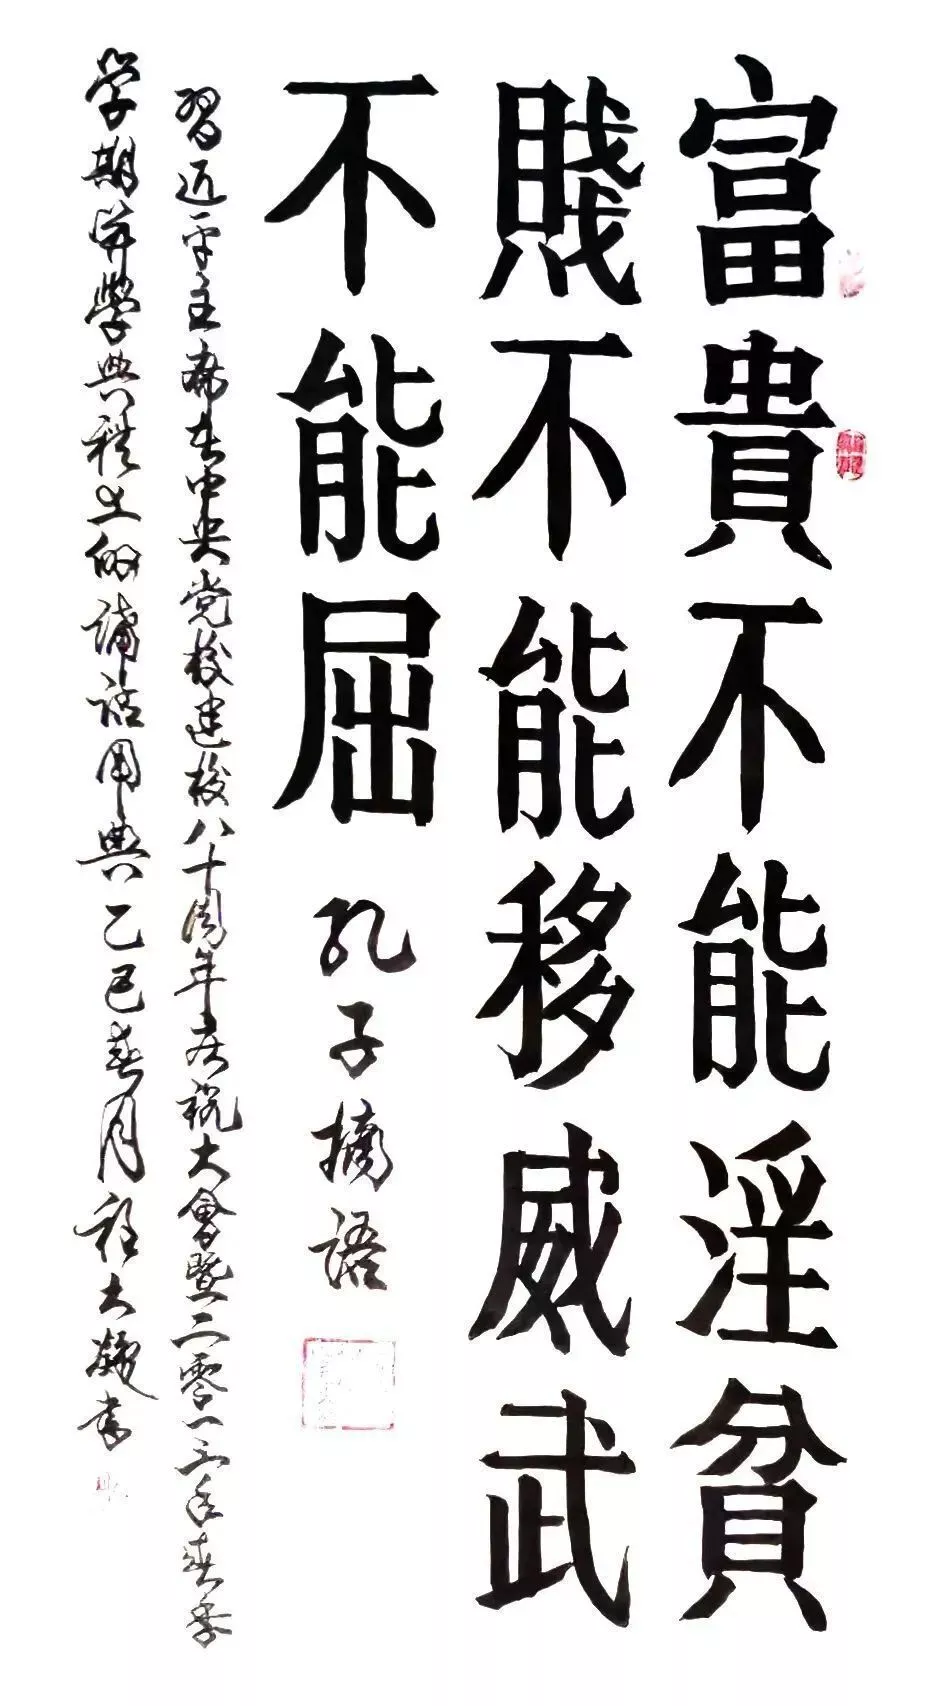 富貴不能淫貧
賤不能移威武
不能屈 孔子摘語
習近平主席在中央党校建校八十周年庆祝大會暨二零一三年春季
学期開學典礼上的講話用典乙巳春月程大凝書